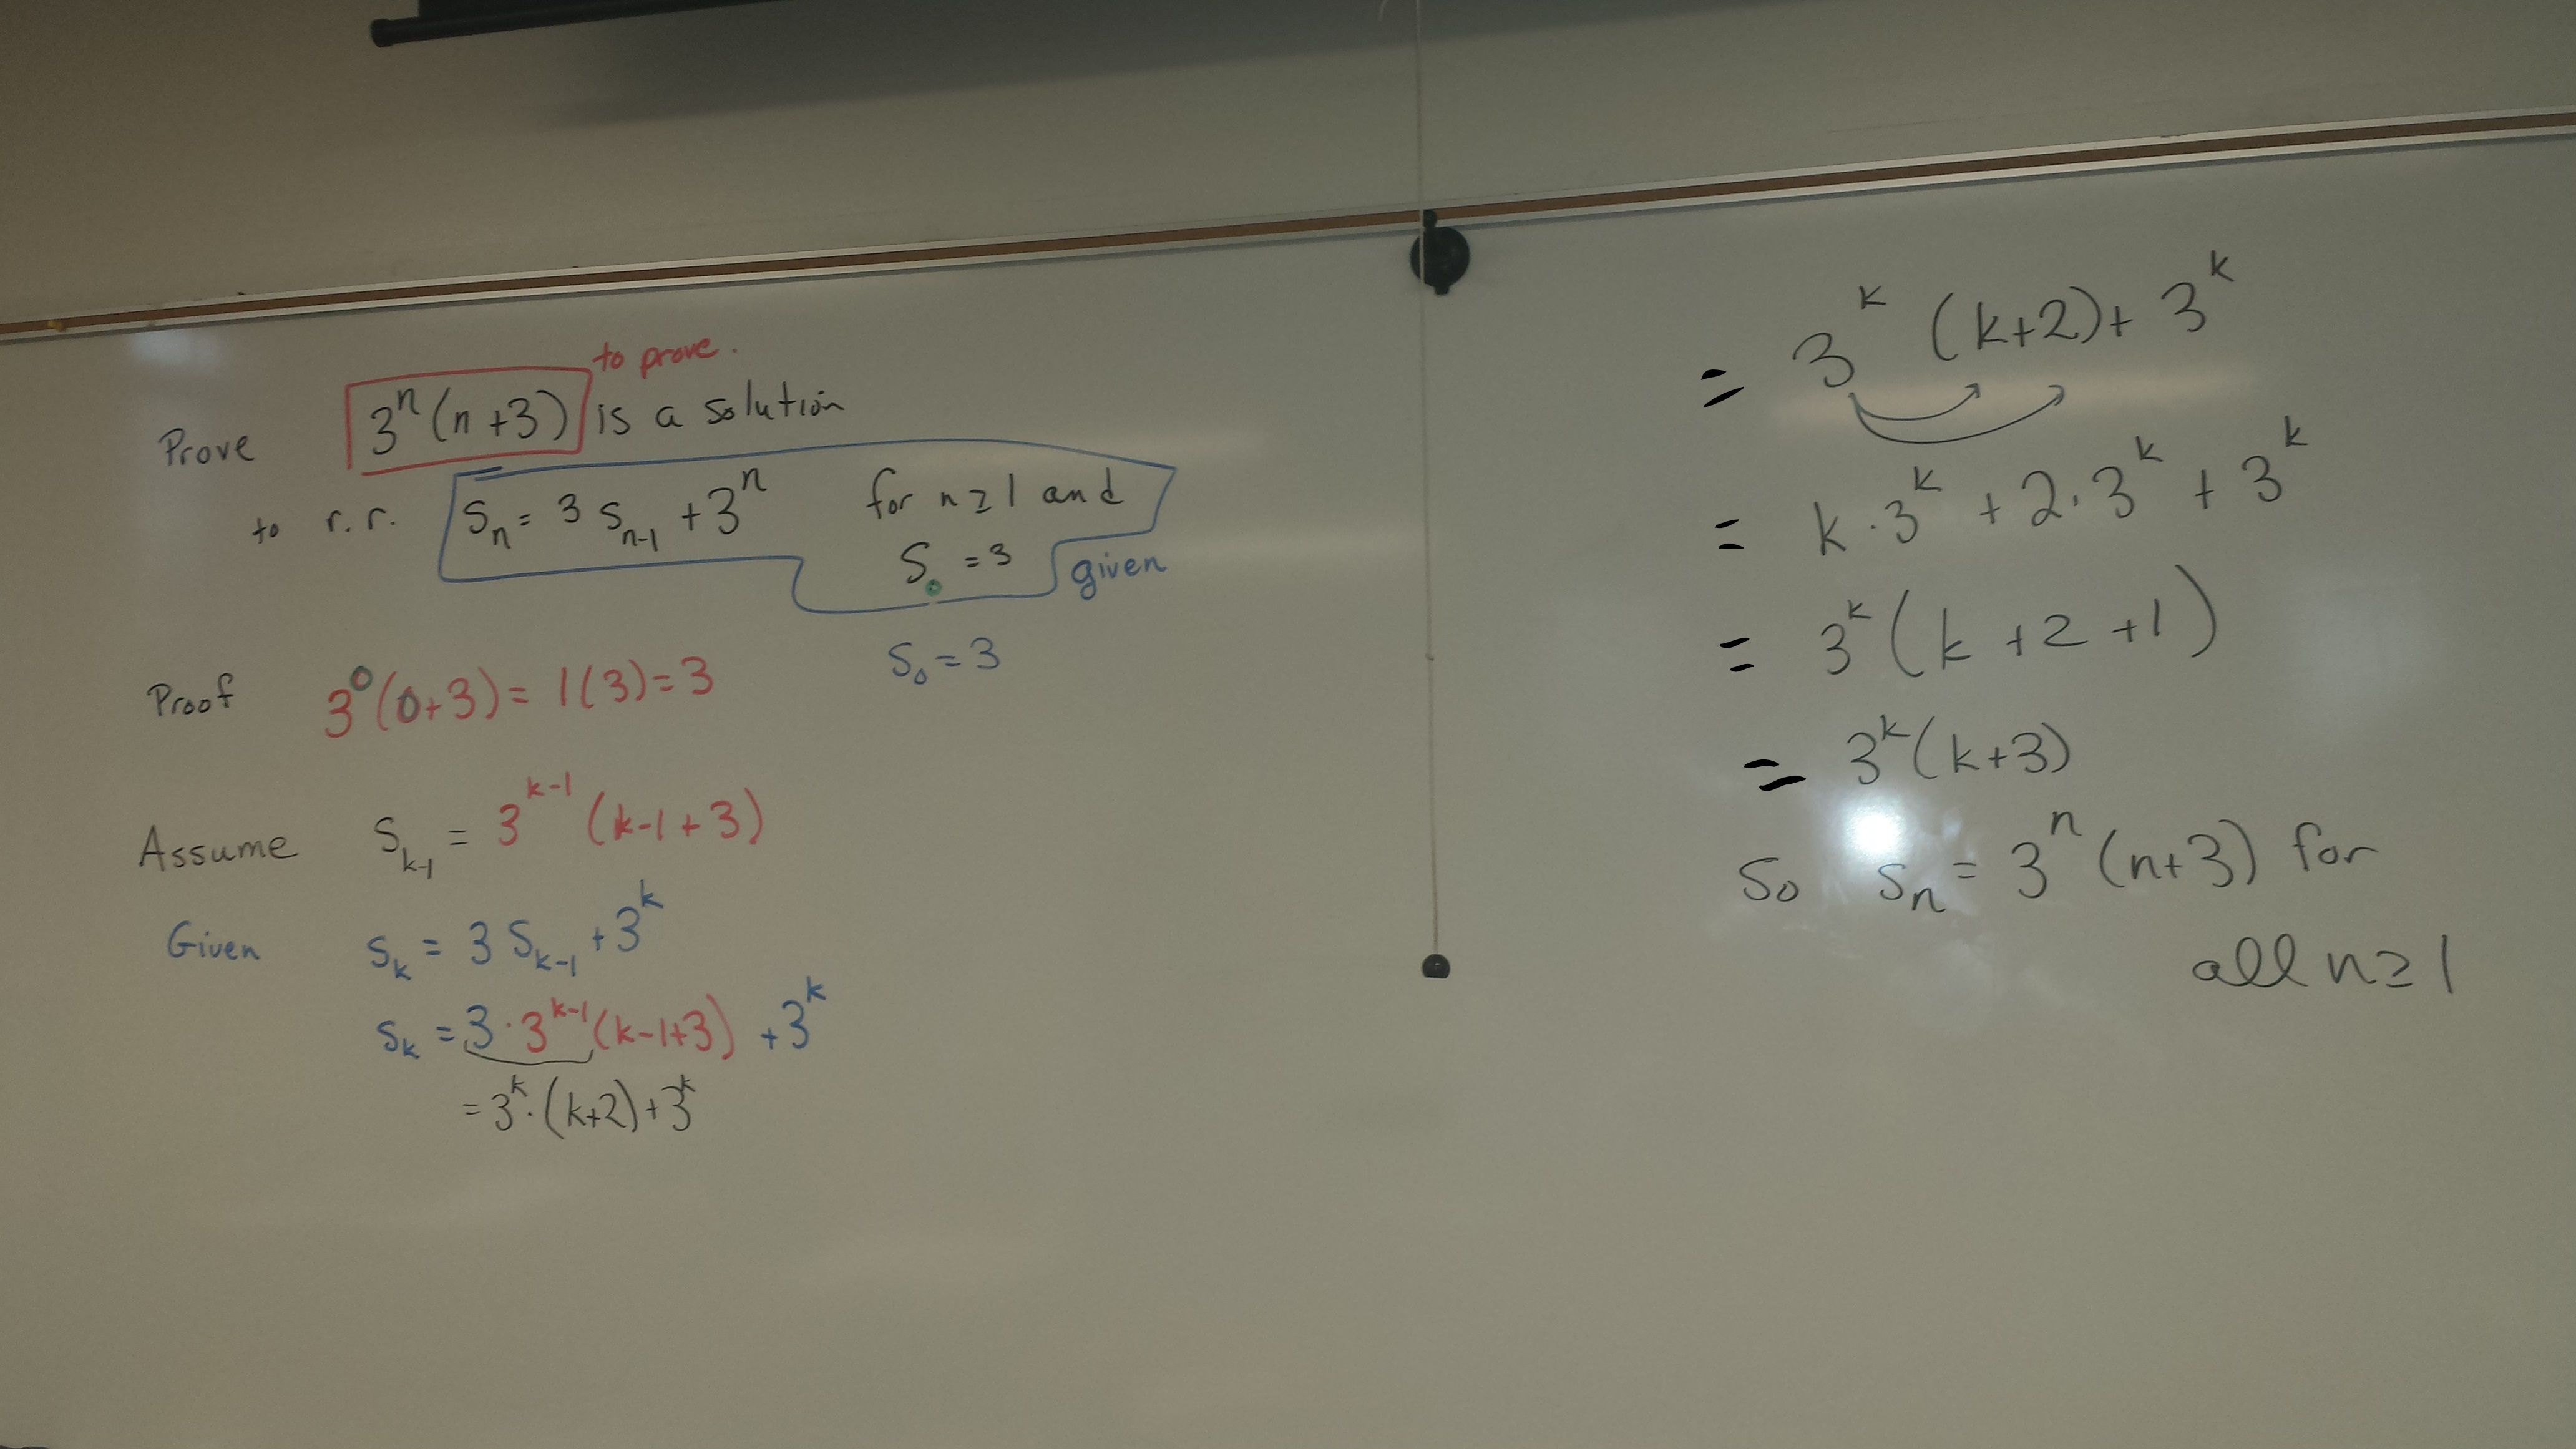 to prove.
Prove 3ⁿ(n+3) is a solution
to r.r. Sₙ = 3 Sₙ₋₁ + 3ⁿ for n ≥ 1 and
S₀ = 3 given
Proof 3⁰(0+3) = 1(3) = 3 S₀ = 3
Assume Sₖ₋₁ = 3ᵏ⁻¹ (k-1+3)
Given Sₖ = 3 Sₖ₋₁ + 3ᵏ
Sₖ = 3·3ᵏ⁻¹(k-1+3) + 3ᵏ
= 3ᵏ·(k+2)+3ᵏ
= 3ᵏ (k+2)+ 3ᵏ
= k·3ᵏ + 2·3ᵏ + 3ᵏ
= 3ᵏ(k+2+1)
= 3ᵏ(k+3)
So Sₙ = 3ⁿ(n+3) for
all n ≥ 1